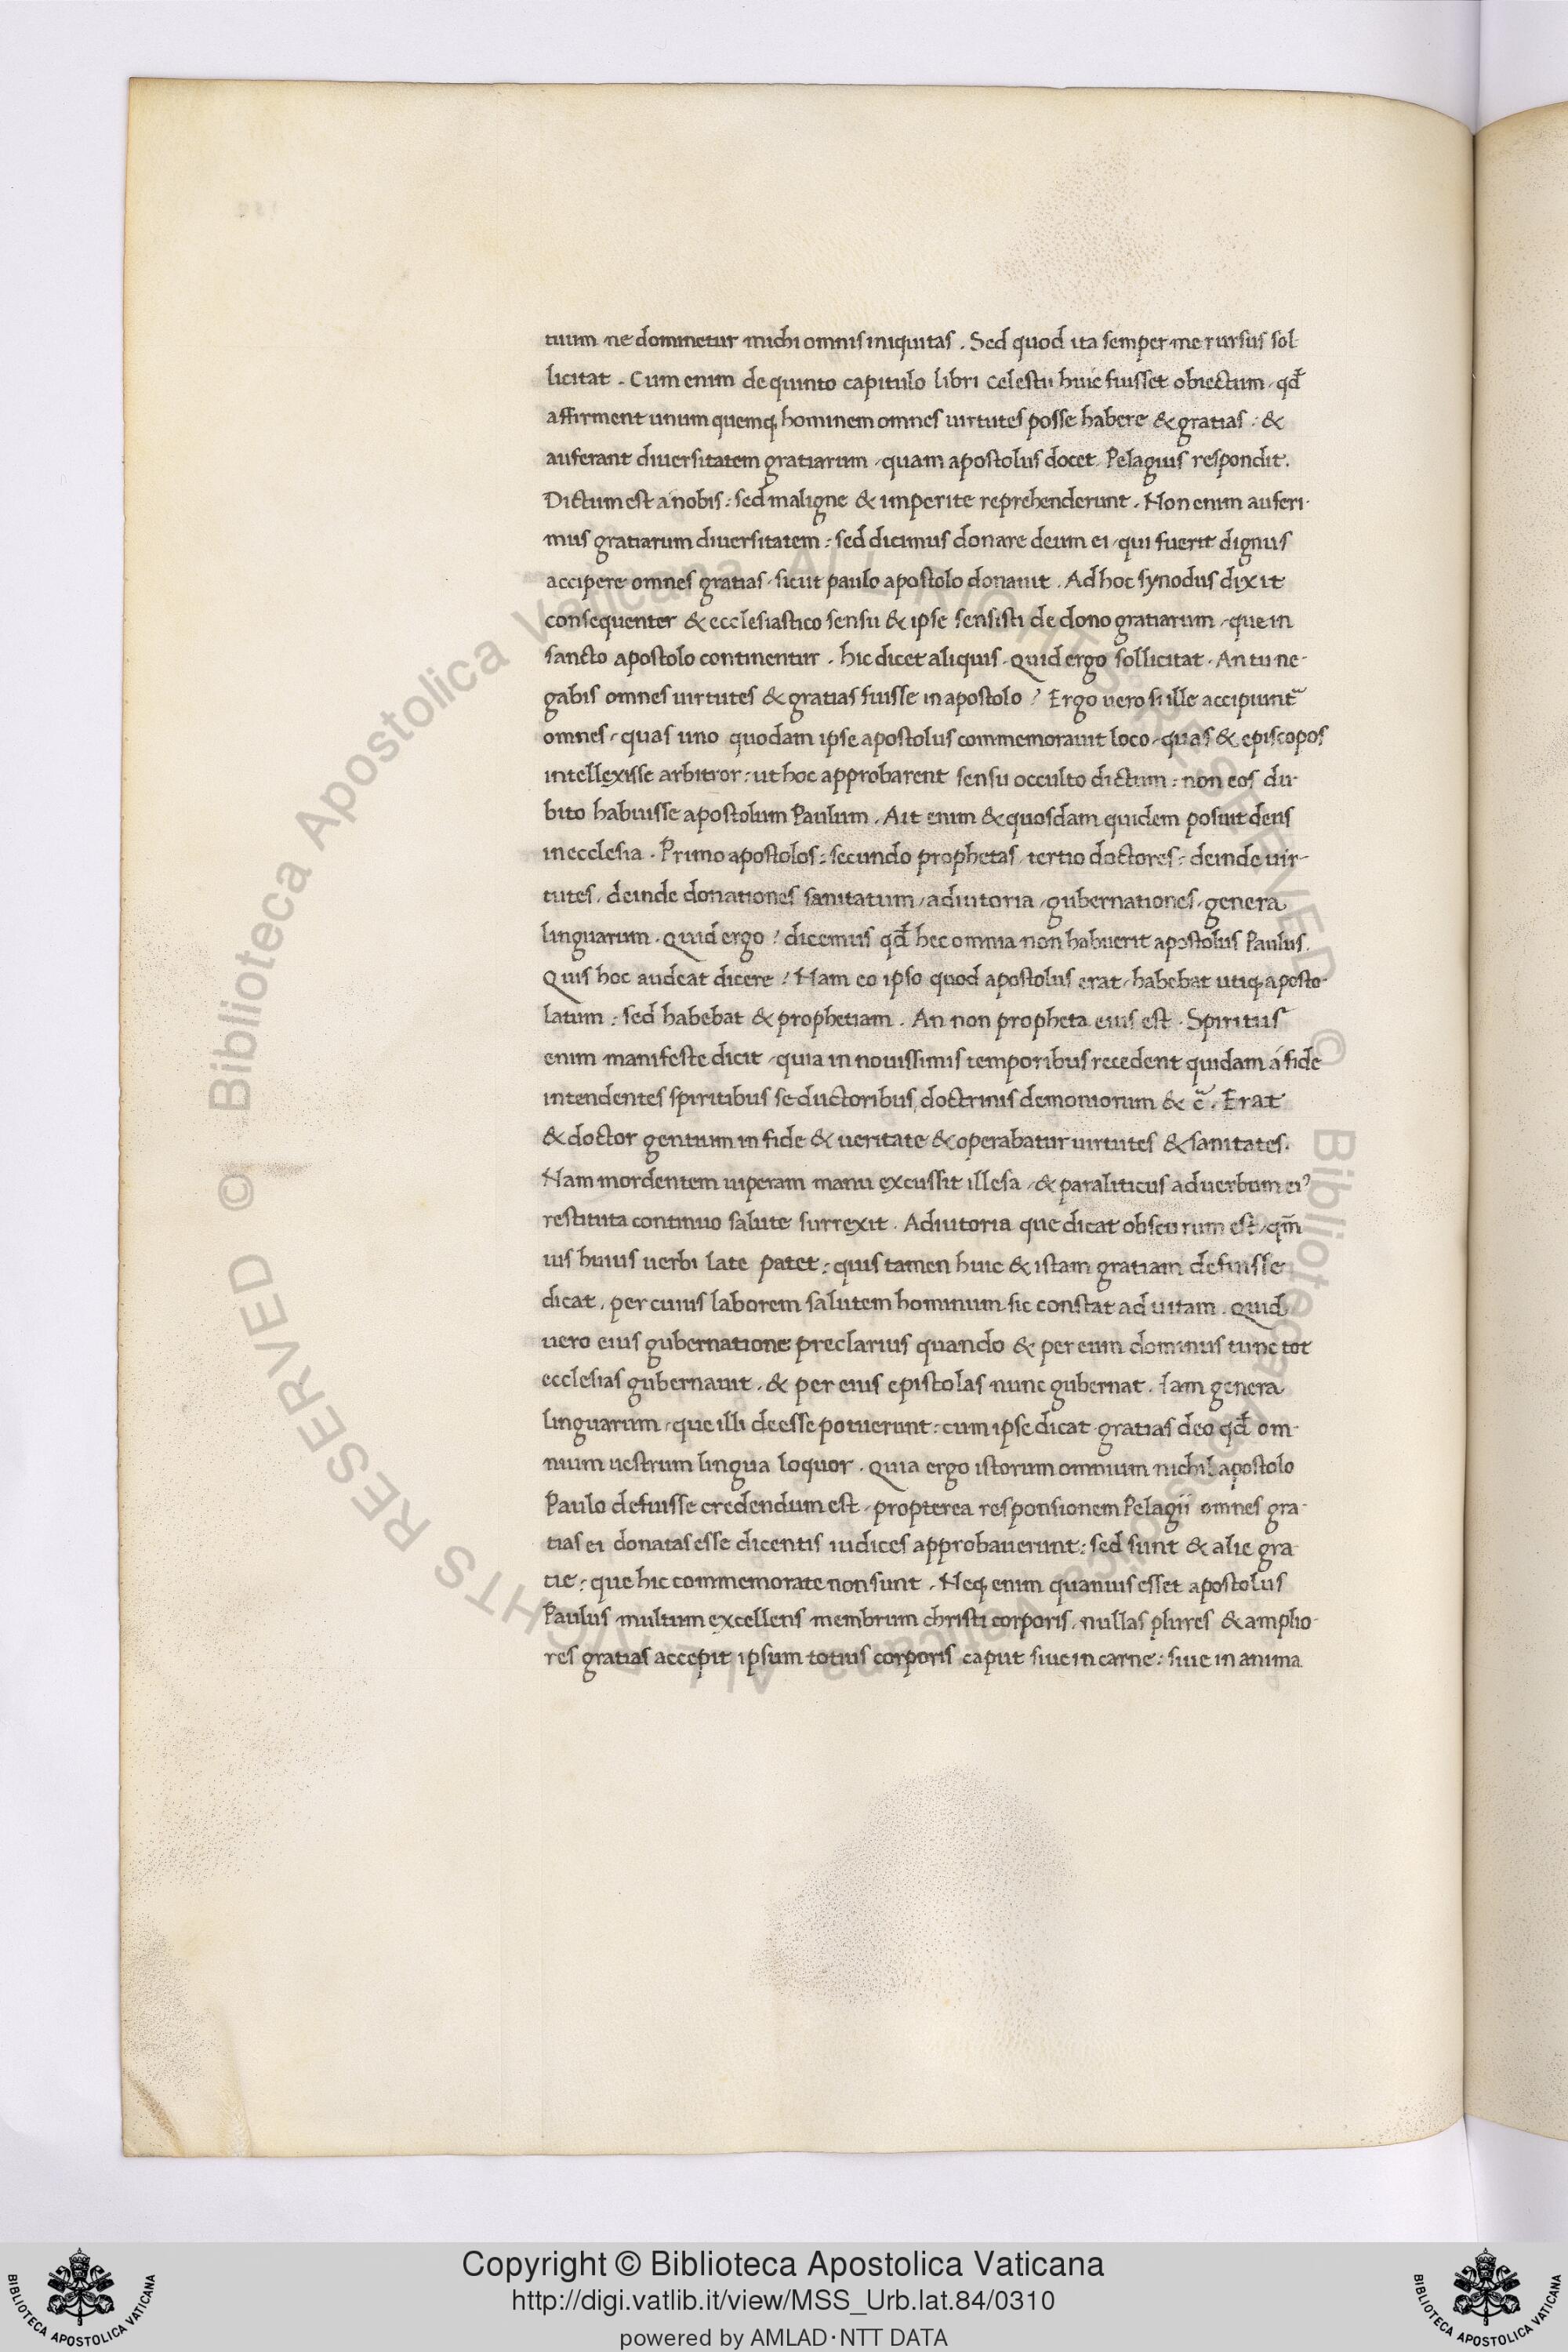 tuum ne dominetur michi omnis iniquitas . Sed quod ita semper me rursus sol-
licitat . Cum enim de quinto capitulo libri Celestii huic fuisset obiectum , qđ
affirment unum quemq; hominem omnes uirtutes posse habere & gratias : &
auferant diuersitatem gratiarum , quam apostolus docet . Pelagius respondit .
Dictum est a nobis : sed maligne & imperite reprehenderunt . Non enim auferi-
mus gratiarum diuersitatem : sed dicimus donare deum ei , qui fuerit dignus
accipere omnes gratias , sicut paulo apostolo donauit . Ad hoc synodus dixit
consequenter & ecclesiastico sensu & ipse sensisti de dono gratiarum , que in
sancto apostolo continentur . hic dicet aliquis . Quid ergo sollicitat . An tu ne-
gabis omnes uirtutes & gratias fuisse in apostolo ? Ergo uero si ille accipiunt̃
omnes , quas uno quodam ipse apostolus commemorauit loco , quas & episcopos
intellexisse arbitror : ut hoc approbarent sensu occulto dictum : non eos du-
bito habuisse apostolum Paulum . Ait enim & quosdam quidem posuit deus
in ecclesia . Primo apostolos : secundo prophetas , tertio doctores : deinde uir-
tutes , deinde donationes sanitatum , adiutoria , gubernationes , genera
linguarum . Quid ergo ? dicemus qđ hec omnia non habuerit apostolus Paulus .
Quis hoc audeat dicere ? Nam eo ipso quod apostolus erat , habebat utiq; aposto-
latum : sed habebat & prophetiam . An non propheta eius est . Spiritus
enim manifeste dicit , quia in nouissimis temporibus recedent quidam á fide
intendentes spiritibus seductoribus , doctrinis demoniorum & c̃ . Erat
& doctor gentium in fide & ueritate & operabatur uirtutes & sanitates .
Nam mordentem uiperam manu excussit illesa , & paraliticus ad uerbum ei⁹
restituta continuo salute surrexit . Adiutoria que dicat obscurum est , qm̃
uis huius uerbi late patet : quis tamen huic & istam gratiam defuisse
dicat , per cuius laborem salutem hominum sic constat ad uitam . Quid
uero eius gubernatione preclarius quando & per eum dominus tunc tot
ecclesias gubernauit , & per eius epistolas nunc gubernat . Iam genera
linguarum , que illi deesse potuerunt : cum ipse dicat gratias deo qđ om-
nium uestrum lingua loquor . Quia ergo istorum omnium nichil apostolo
Paulo defuisse credendum est , propterea responsionem Pelagii omnes gra-
tias ei donatas esse dicentis iudices approbauerunt : sed sunt & alie gra-
tie : que hic commemorate non sunt . Neq; enim quamuis esset apostolus
Paulus multum excellens membrum christi corporis , nullas plures & amplio-
res gratias accepit ipsum totius corporis caput siue in carne : siue in anima
© Biblioteca Apostolica Vaticana ALL RIGHTS RESERVED
© Biblioteca Apostolica Vaticana ALL RIGHTS RESERVED
Copyright © Biblioteca Apostolica Vaticana
http://digi.vatlib.it/view/MSS_Urb.lat.84/0310
powered by AMLAD·NTT DATA
BIBLIOTECA APOSTOLICA VATICANA
BIBLIOTECA APOSTOLICA VATICANA